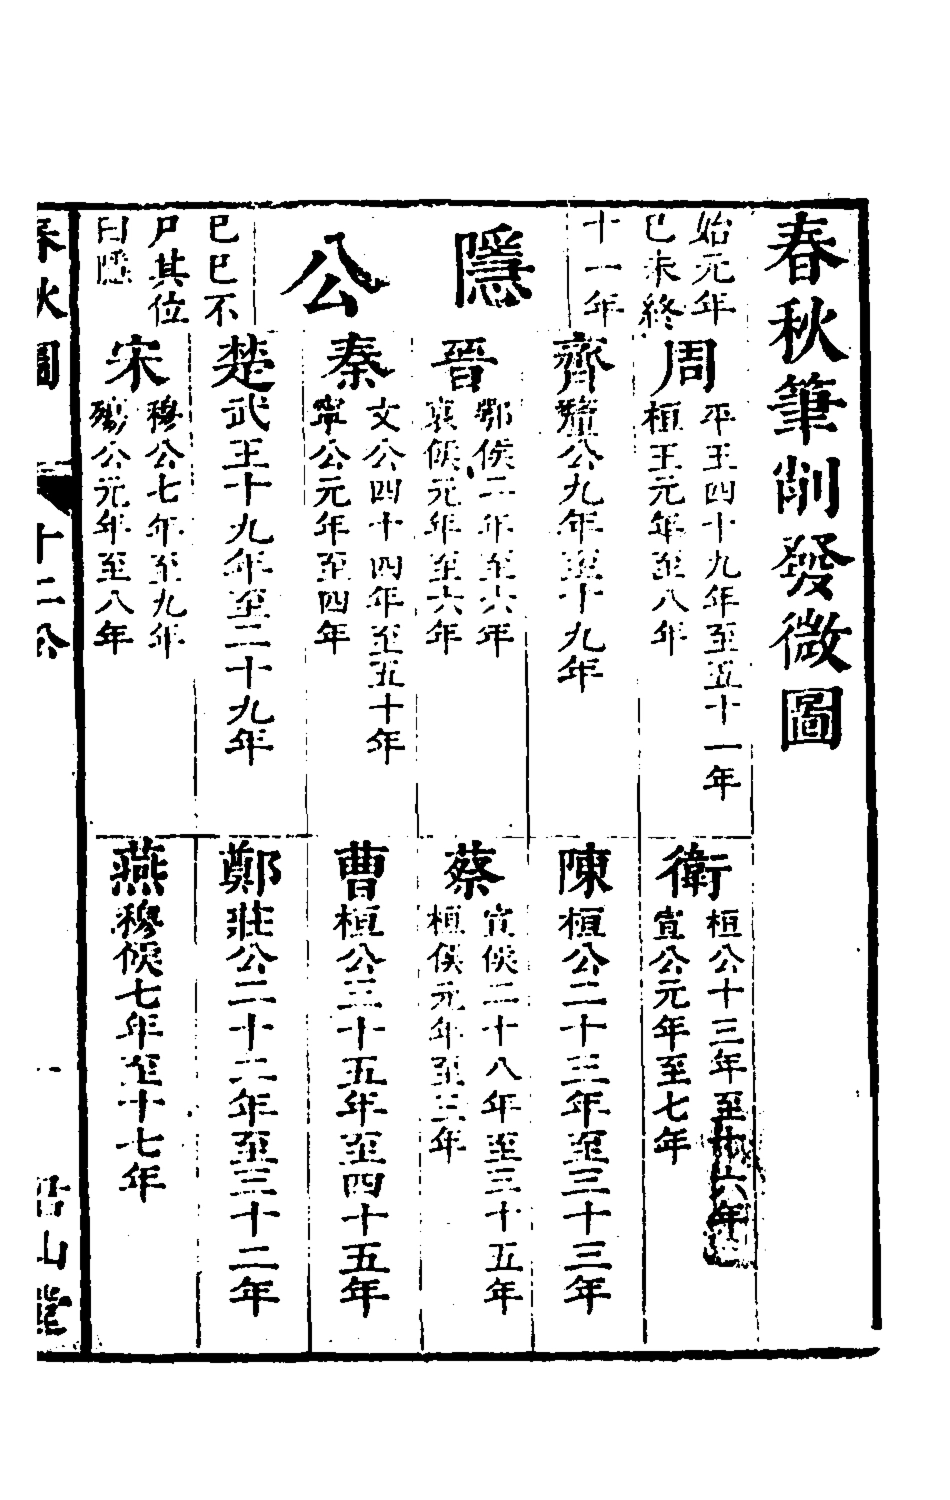 春秋筆削發微圖
始元年
己未終
十一年
隱公
己巳不
尸其位
曰隱
周
平王四十九年至五十一年
桓王元年至八年
齊釐公九年至十九年
晉
鄂侯二年至六年
哀侯元年至六年
秦
文公四十四年至五十年
寧公元年至四年
楚武王十九年至二十九年
宋
穆公七年至九年
殤公元年至八年
衛
桓公十三年至十六年
宣公元年至七年
陳桓公二十三年至三十三年
蔡
宣侯二十八年至三十五年
桓侯元年至三年
曹桓公三十五年至四十五年
鄭莊公二十二年至三十二年
燕穆侯七年至十七年
春秋圖
十二公
一
山堂